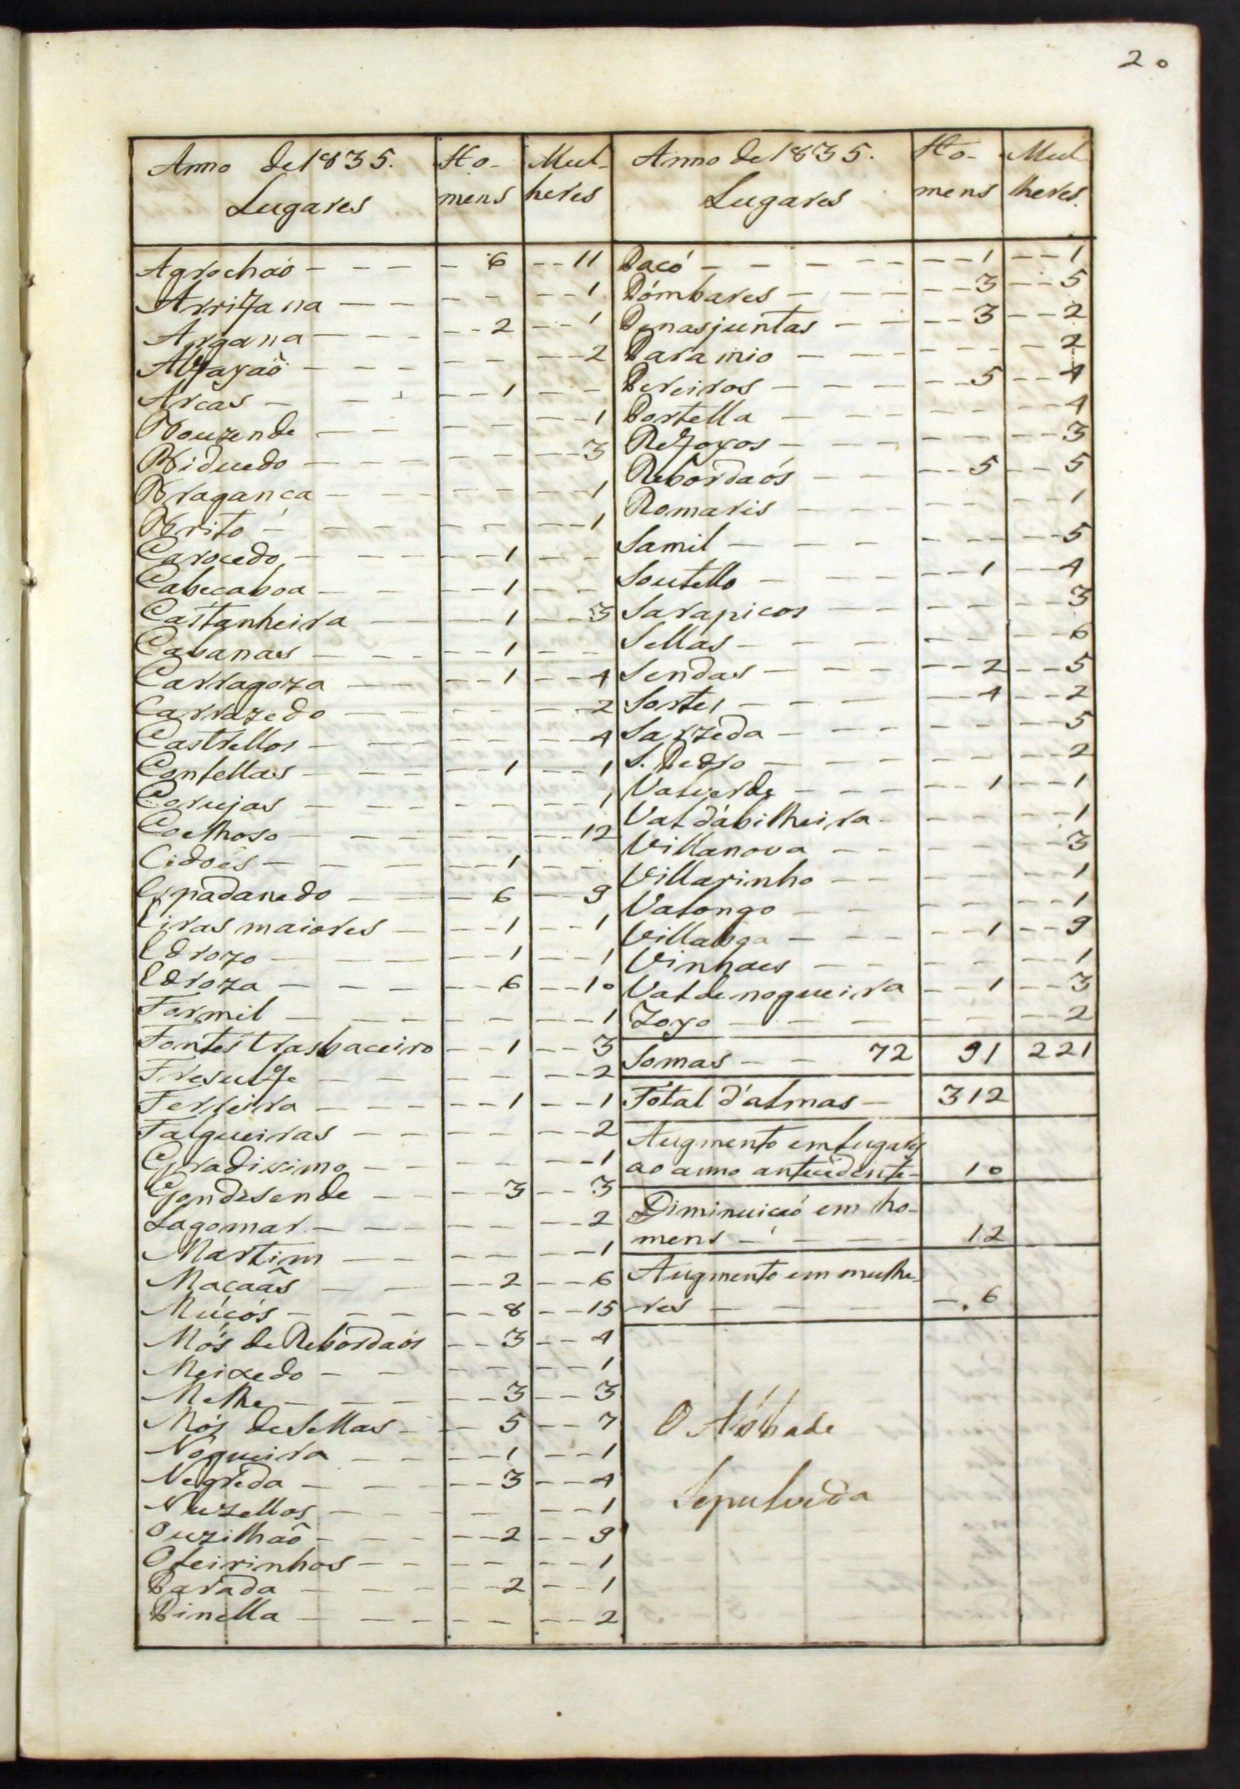 20
Anno de 1835. Lugares | Ho-mens | Mul-heres
Agrochaó - 6 - 11
Arrifana - - 1
Argana - 2 - 1
Alfayaõ - - 2
Arcas - 1 -
Bouzende - - 1
Biduedo - - 3
Braganca - - 1
Brito - - 1
Carocedo - 1 -
Cabecaboa - 1 -
Castanheira - 1 - 3
Cabanas - 1 -
Carragoza - 1 - 4
Carrazedo - - 2
Castrellos - - 4
Contellas - 1 - 1
Corujas - - 1
Coelhoso - - 12
Cidoés - 1 -
Espadanedo - 6 - 9
Eiras maiores - 1 - 1
Edrozo - 1 - 1
Edroza - 6 - 10
Formil - - 1
Fontes trasbaceiro - 1 - 3
Fresulfe - - 2
Ferreira - 1 - 1
Falgueiras - - 2
Gradissimo - - 1
Gondesende - 3 - 3
Lagomar - - 2
Martim - - 1
Macaãs - 2 - 6
Múcós - 8 - 15
Mós de Rebordaós - 3 - 4
Meixedo - - 1
Melhe - 3 - 3
Mós de Sellas - 5 - 7
Nogueira - 1 - 1
Negreda - 3 - 4
Nuzellos - - 1
Ouzilhaõ - 2 - 9
Oleirinhos - - 1
Parada - 2 - 1
Pinella - - 2
Anno de 1835. Lugares | Ho-mens | Mul-lheres.
Pacó - 1 - 1
Pómbares - 3 - 5
Penasjuntas - 3 - 2
Paramio - - 2
Pereiros - 5 - 4
Portella - - 4
Refoyos - - 3
Rebordaós - 5 - 5
Romaris - - 1
Samil - - 5
Soutello - 1 - 4
Sarapicos - - 3
Sellas - - 6
Sendas - 2 - 5
Sortes - 4 - 2
Sarzeda - - 5
S. Pedro - - 2
Valverde - 1 - 1
Val d'abilheira - - 1
Villanova - - 3
Villarinho - - 1
Valongo - - 1
Villaboa - 1 - 9
Vinhaes - - 1
Val de nogueira - 1 - 3
Zoyo - - 2
Somas - 72 | 91 | 221
Total d'almas - 312
Augmento em lugares
ao anno antecidente - 10
Diminuicaó em ho-
mens - 12
Augmento em mulhe-
res - 6
O Abbade
Sepulveda